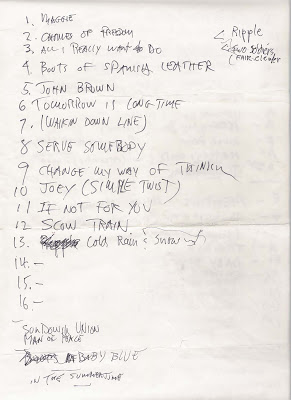 1. MAGGIE
2. CHIMES OF FREEDOM
3. ALL I REALLY WANT TO DO
4. BOOTS OF SPANISH LEATHER
5. JOHN BROWN
6 TOMORROW IS LONG TIME
7. (WALKIN DOWN LINE)
8 SERVE SOMEBODY
9 CHANGE MY WAY OF THINKIN
10 JOEY (SIMPLE TWIST)
11 IF NOT FOR YOU
12 SLOW TRAIN
13. Cold Rain & Snow
14.-
15.-
16.-
SUNDOWN UNION
MAN OF PEACE
BABY BLUE
IN THE SUMMERTIME
Ripple
TWO Soldiers